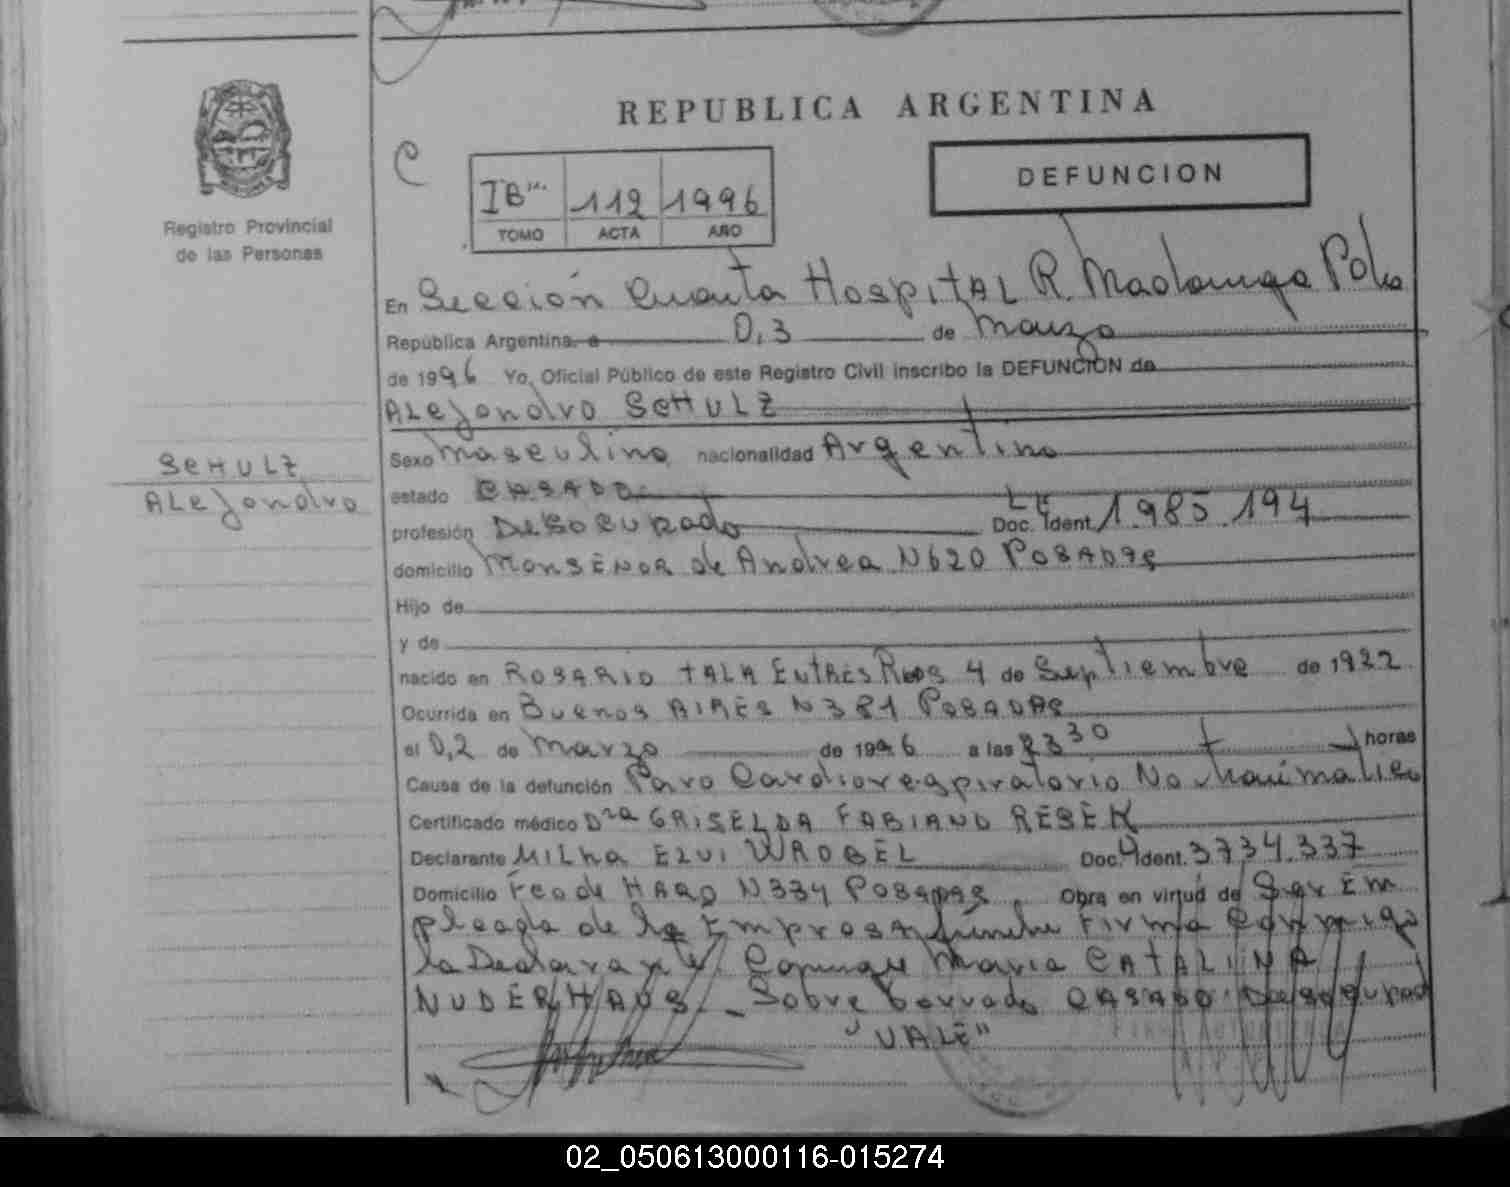 REPUBLICA ARGENTINA
DEFUNCION
112 1996
TOMO ACTA AÑO
Registro Provincial
de las Personas
En Sección Cuarta Hospital R. Madariaga
República Argentina, a 0,3 de Marzo
de 1996 Yo, Oficial Público de este Registro Civil inscribo la DEFUNCION de
Alejandro SCHULZ
SCHULZ
Alejandro
Sexo Masculino nacionalidad Argentino
estado CASADO
profesión Desocupado Doc. Ident. 1.985.194
domicilio Monseñor de Andrea N620 Posadas
Hijo de
y de
nacido en Rosario Tala Entres Rios 4 de Septiembre de 1922
Ocurrida en Buenos Aires N381 Posadas
el 0,2 de Marzo de 1996 a las 2330 horas
Causa de la defunción Paro Cardiorespiratorio No traumatico
Certificado médico Dra GRISELDA FABIANO RESEK
Declarante WROBEL Doc. Ident. 3734.337
Domicilio Fco de Haro N334 Posadas Obra en virtud de Ser Em
pleada de la Empresa fúnebre Firma Conmigo
la Declarante. Conyuge Maria CATALINA
NUDERHAUS._ Sobre borrado CASADO Desocupado
"VALE"
02_050613000116-015274